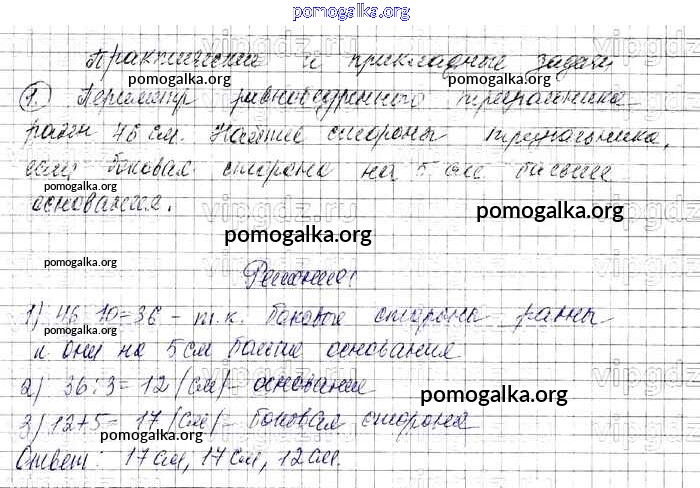 pomogalka.org
Практические и прикладные задачи
pomogalka.org
pomogalka.org
1. Периметр равнобедренного треугольника
равен 46 см. Найдите стороны треугольника,
pomogalka.org
если боковая сторона на 5 см больше
pomogalka.org
основания.
vipgdz.ru
pomogalka.org
pomogalka.org
Решение:
1) 46-10=36 - т.к. боковые стороны равны
и они на 5 см больше основания
2) 36:3=12 (см) - основание
pomogalka.org
3) 12+5=17 (см) - боковая сторона
pomogalka.org
Ответ: 17 см, 17 см, 12 см.